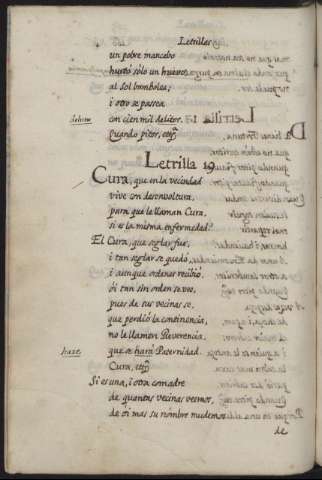 Letrillas
un pobre mancebo
hurtó sólo un huevo,
al sol bambolea;
i otro se passea
delitos con cien mil delitos.
Quando pitos, etc.
Letrilla 19
Cura, que en la vecindad
vive con desemboltura,
para que le llaman Cura,
si es la misma enfermedad?
El Cura, que seglar fue,
i tan seglar se quedó,
i aunque ordenes recibió
ói tan sin orden se vee,
pues de sus vecinas se
que perdió la continencia,
no le llamen Reverencia,
hace que se hará Paternidad.
Cura, etc.
Si es una, i otra comadre
de quantas vecinas vemos,
de oi mas su nombre mudemos
de